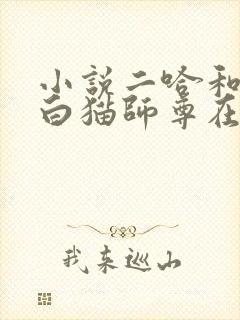 小說二哈和
白猫師尊在
我来巡山